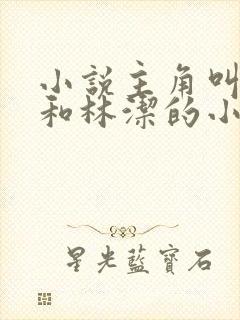 小說主角叫
和林潔的小
星光藍寶石